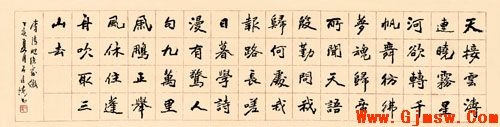 天接雲濤
連曉霧星
河欲轉千
帆舞彷彿
夢魂歸帝
所聞天語
殷勤問我
歸何處我
報路長嗟
日暮學詩
漫有驚人
句九萬里
風鵬正舉
風休住蓬
舟吹取三
山去
李清照漁家傲
www.Gjmsw.com